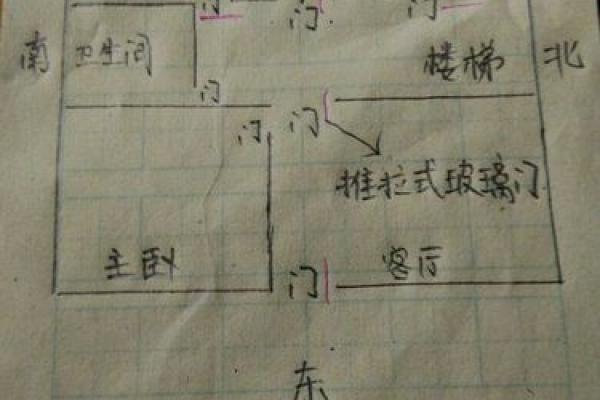 门 门 门
南 卫生间 楼梯 北
门
门 门
推拉式玻璃门
主卧 客厅
门
东